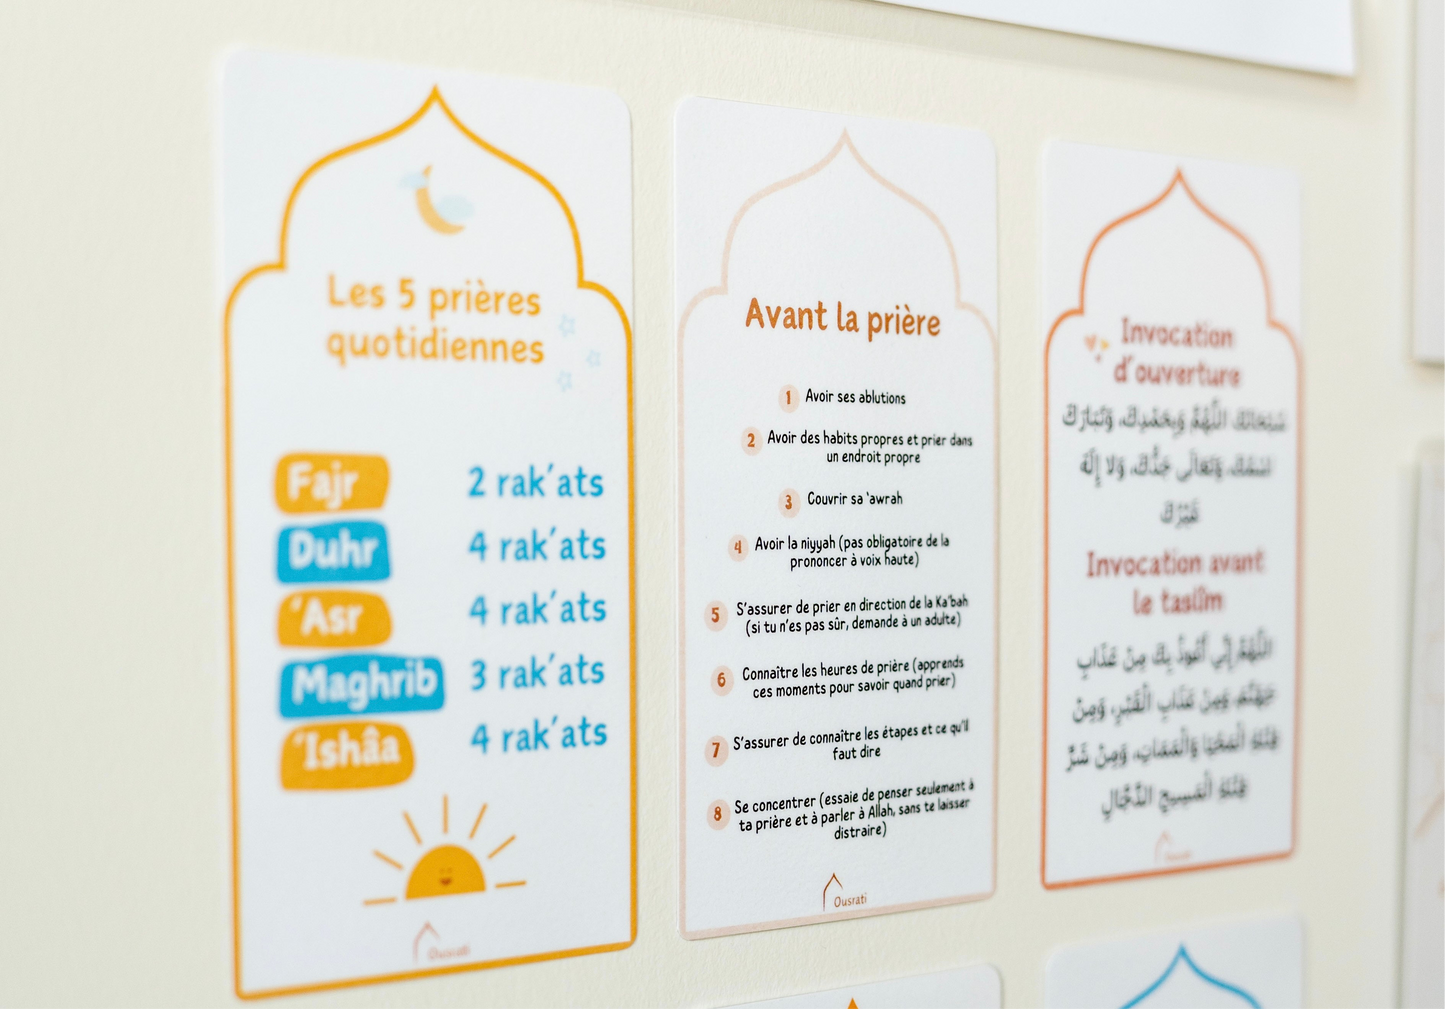 Les 5 prières
quotidiennes
Fajr 2 rak'ats
Duhr 4 rak'ats
'Asr 4 rak'ats
Maghrib 3 rak'ats
'Ishâa 4 rak'ats
Ousrati
Avant la prière
1 Avoir ses ablutions
2 Avoir des habits propres et prier dans
un endroit propre
3 Couvrir sa 'awrah
4 Avoir la niyyah (pas obligatoire de la
prononcer à voix haute)
5 S'assurer de prier en direction de la Ka'bah
(si tu n'es pas sûr, demande à un adulte)
6 Connaître les heures de prière (apprends
ces moments pour savoir quand prier)
7 S'assurer de connaître les étapes et ce qu'il
faut dire
8 Se concentrer (essaie de penser seulement à
ta prière et à parler à Allah, sans te laisser
distraire)
Ousrati
Invocation
d'ouverture
سُبْحَانَكَ اللَّهُمَّ وَبِحَمْدِكَ، وَتَبَارَكَ
اسْمُكَ، وَتَعَالَى جَدُّكَ، وَلَا إِلَهَ
غَيْرُكَ
Invocation avant
le taslîm
اللَّهُمَّ إِنِّي أَعُوذُ بِكَ مِنْ عَذَابِ
جَهَنَّمَ، وَمِنْ عَذَابِ الْقَبْرِ، وَمِنْ
فِتْنَةِ الْمَحْيَا وَالْمَمَاتِ، وَمِنْ شَرِّ
فِتْنَةِ الْمَسِيحِ الدَّجَّالِ
Ousrati